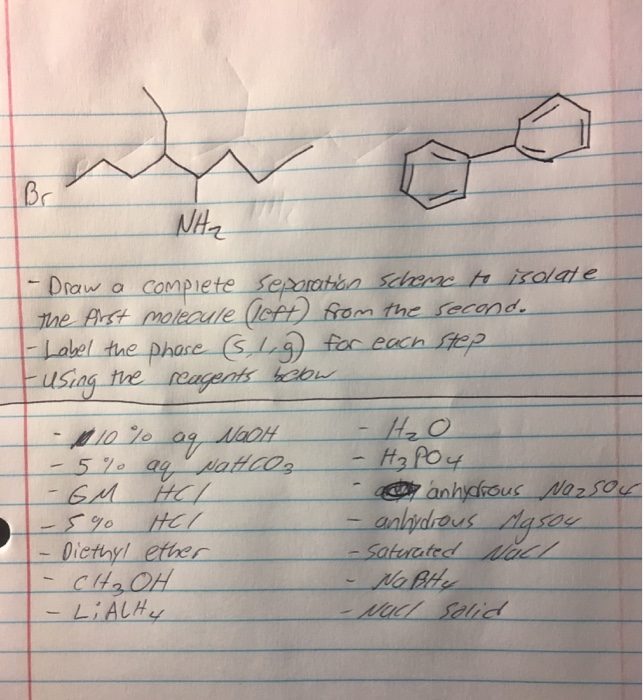 Br
NH2
- Draw a complete separation scheme to isolate
the first molecule (left) from the second.
- Label the phase (s, l, g) for each step
- using the reagents below
- 10% aq NaOH
- 5% aq NaHCO3
- 6M HCl
- 5% HCl
- Diethyl ether
- CH3OH
- LiAlH4
- H2O
- H3PO4
- anhydrous Na2SO4
- anhydrous MgSO4
- saturated NaCl
- NaBH4
- NaCl solid